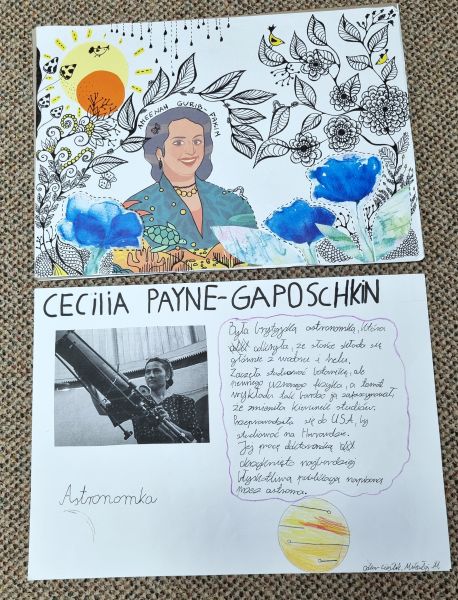 AMEENAH GURIB-FAKIM
CECILIA PAYNE-GAPOSCHKIN
Była brytyjską astronomką, która
odkryła, że słońce składa się
głównie z wodoru i helu.
Zaczęła studiować botanikę, ale
pewnego uznanego fizyka, a temat
wykładu tak bardzo ją zafascynował,
że zmieniła kierunek studiów.
Przeprowadziła się do USA, by
studiować na Harvardzie.
Jej pracę doktorancką
okrzyknięto najbardziej
błyskotliwą publikacją napisaną
przez astronoma.
Astronomka
Mikołaj M.